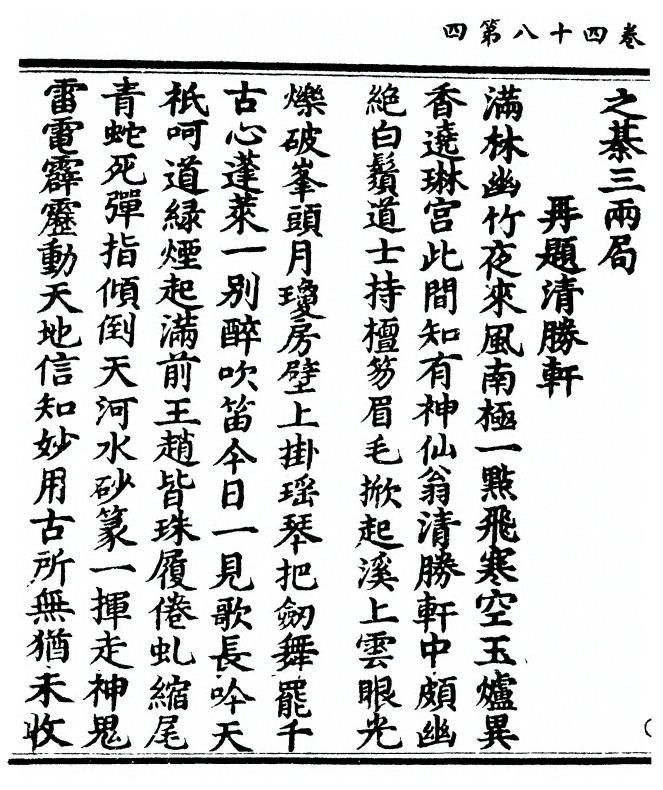 四第八十四卷
之棊三兩局
再題清勝軒
滿林幽竹夜來風南極一點飛寒空玉爐異
香遶琳宫此間知有神仙翁清勝軒中頗幽
絶白鬚道士持檀笏眉毛掀起溪上雲眼光
爍破峯頭月瓊房壁上掛瑶琴把劒舞罷千
古心蓬萊一别醉吹笛今日一見歌長吟天
祇呵道緑煙起滿前王趙皆珠履倦虬縮尾
青蛇死彈指傾倒天河水砂篆一揮走神鬼
雷電霹靂動天地信知妙用古所無猶未收